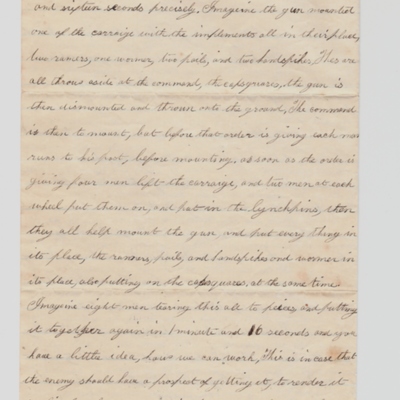 and sixteen seconds precisely. Imageine the gun mounted
one of the carraige with the implements all in their place,
two ramers, one wormer, two pails, and two handspikes, Thes are
all throw aside at the command, the capsquares, the gun is
then dismounted and thrown onto the ground, The command
is then to mount, but before that order is giving each man
runs to his post, before mounting. as soon as the order is
giving four men left the carraige, and two men at each
wheel put them on, and put in the lynchpins, then
they all help mount the gun, and put every thing in
its place, the rammers, pails and handspikes and wormer in
its place, also putting on the capsquares, at the same time
Imageine eight men tearing this all to pieces and putting
it together again in 1 minute and 16 seconds and you
have a little idea, how we can work, This is in case that
the enemy should have a prospect of getting it, to render it